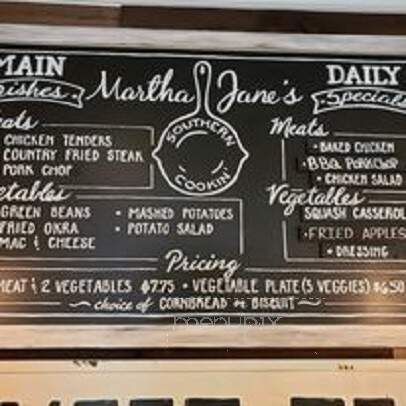 MAIN
Dishes
Martha Jane's
SOUTHERN
COOKIN'
Meats
CHICKEN TENDERS
COUNTRY FRIED STEAK
PORK CHOP
Vegetables
GREEN BEANS
FRIED OKRA
MAC & CHEESE
• MASHED POTATOES
• POTATO SALAD
DAILY
Specials
Meats
• BAKED CHICKEN
• BBQ PORKCHOP
• CHICKEN SALAD
Vegetables
SQUASH CASSEROL
• FRIED APPLES
• DRESSING
Pricing
MEAT & 2 VEGETABLES $7.75 • VEGETABLE PLATE (3 VEGGIES) $6.50
choice of CORNBREAD or BISCUIT
menupix